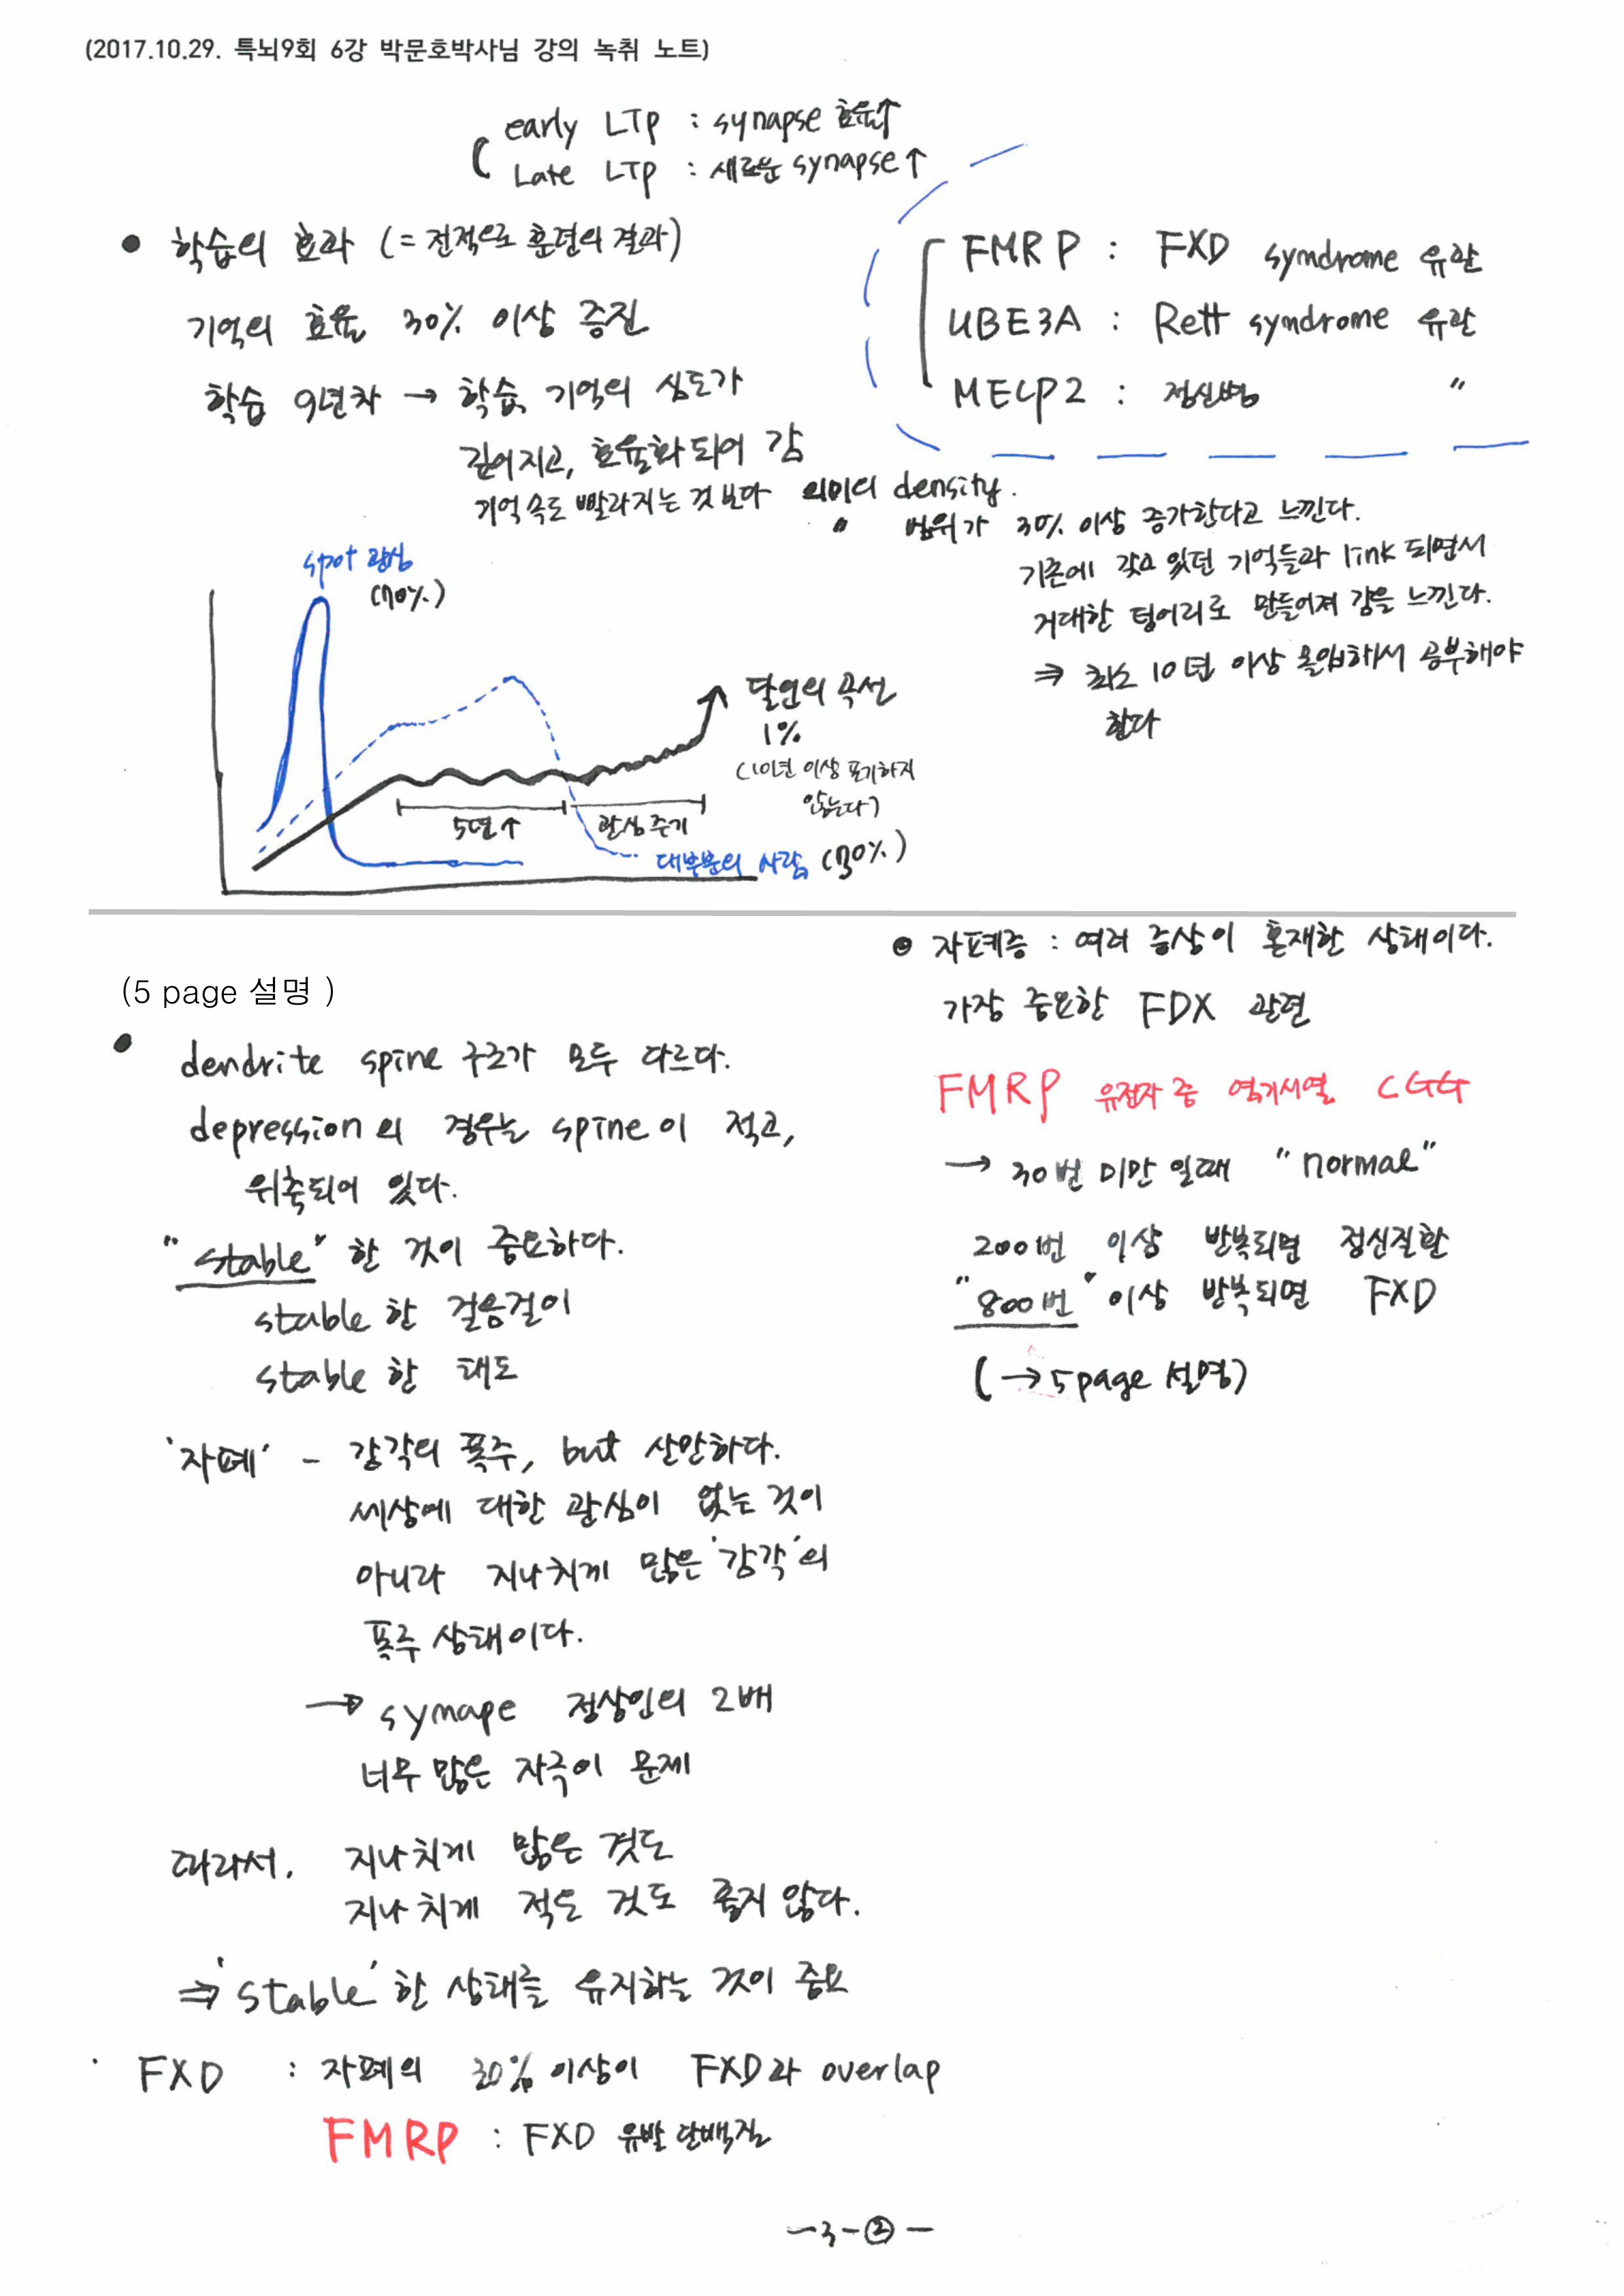 (2017.10.29. 특뇌9회 6강 박문호박사님 강의 녹취 노트)
early LTP : synapse 효율↑
Late LTP : 새로운 synapse↑
● 학습의 효과 (= 전적으로 훈련의 결과)
기억의 효율 30% 이상 증진
학습 9년차 → 학습, 기억의 심도가
깊어지고, 효율화 되어 감
기억 속도 빨라지는 것 보다 의미의 density.
〃 범위가 30% 이상 증가한다고 느낀다.
기존에 갖고 있던 기억들과 link 되면서
거대한 덩어리로 만들어져 감을 느낀다.
⇒ 최소 10년 이상 몰입해서 공부해야
한다
FMRP : FXD symdrome 유관
UBE3A : Rett symdrome 유관
MECP2 : 정신병 〃
spot 관심
(70%)
달인의 곡선
1%
(10년 이상 포기하지
않는다)
5년↑
관심 주기
대부분의 사람 (30%)
(5 page 설명 )
● dendrite spine 구조가 모두 다르다.
depression의 경우는 spine이 적고,
위축되어 있다.
"stable"한 것이 중요하다.
stable한 걸음걸이
stable한 태도
'자폐' - 감각의 폭주, but 산만하다.
세상에 대한 관심이 없는 것이
아니라 지나치게 많은 '감각'의
폭주 상태이다.
→ symape 정상인의 2배
너무 많은 자극이 문제
따라서, 지나치게 많은 것도
지나치게 적은 것도 좋지 않다.
⇒ 'stable'한 상태를 유지하는 것이 중요
· FXD : 자폐의 30% 이상이 FXD와 overlap
FMRP : FXD 유발 단백질
◉ 자폐증 : 여러 증상이 혼재한 상태이다.
가장 중요한 FDX 관련
FMRP 유전자 중 염기서열 CGG
→ 30번 미만 일때 "normal"
200번 이상 반복되면 정신질환
"800번" 이상 반복되면 FXD
(→ 5page 설명)
-3-②-